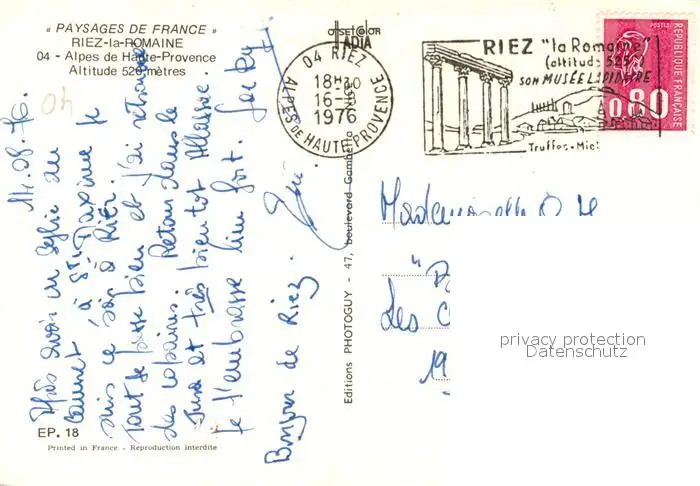 « PAYSAGES DE FRANCE »
RIEZ-la-ROMAINE
04 - Alpes de Haute-Provence
Altitude 520 mètres
offset color
IADIA
04 RIEZ
18H30
16-8
1976
ALPES DE HAUTE-PROVENCE
RIEZ "la Romaine"
(altitude 525)
SON MUSÉE LAPIDAIRE
Truffes-Miel
POSTES
RÉPUBLIQUE FRANÇAISE
0,80
04
14.08.76.
Après avoir vu Sylvie au
Cannet à Ste Maxime je
suis ce soir à Riez
Tout se passe bien et j'ai retrouvé
des copains. Retour dans le
Jura et très bientôt
Je t'embrasse bien fort. Jacky
Bonjour de Riez.
Editions PHOTOGUY - 47, boulevard Gambetta
Mademoiselle
Les
19
privacy protection
Datenschutz
EP. 18
Printed in France - Reproduction interdite